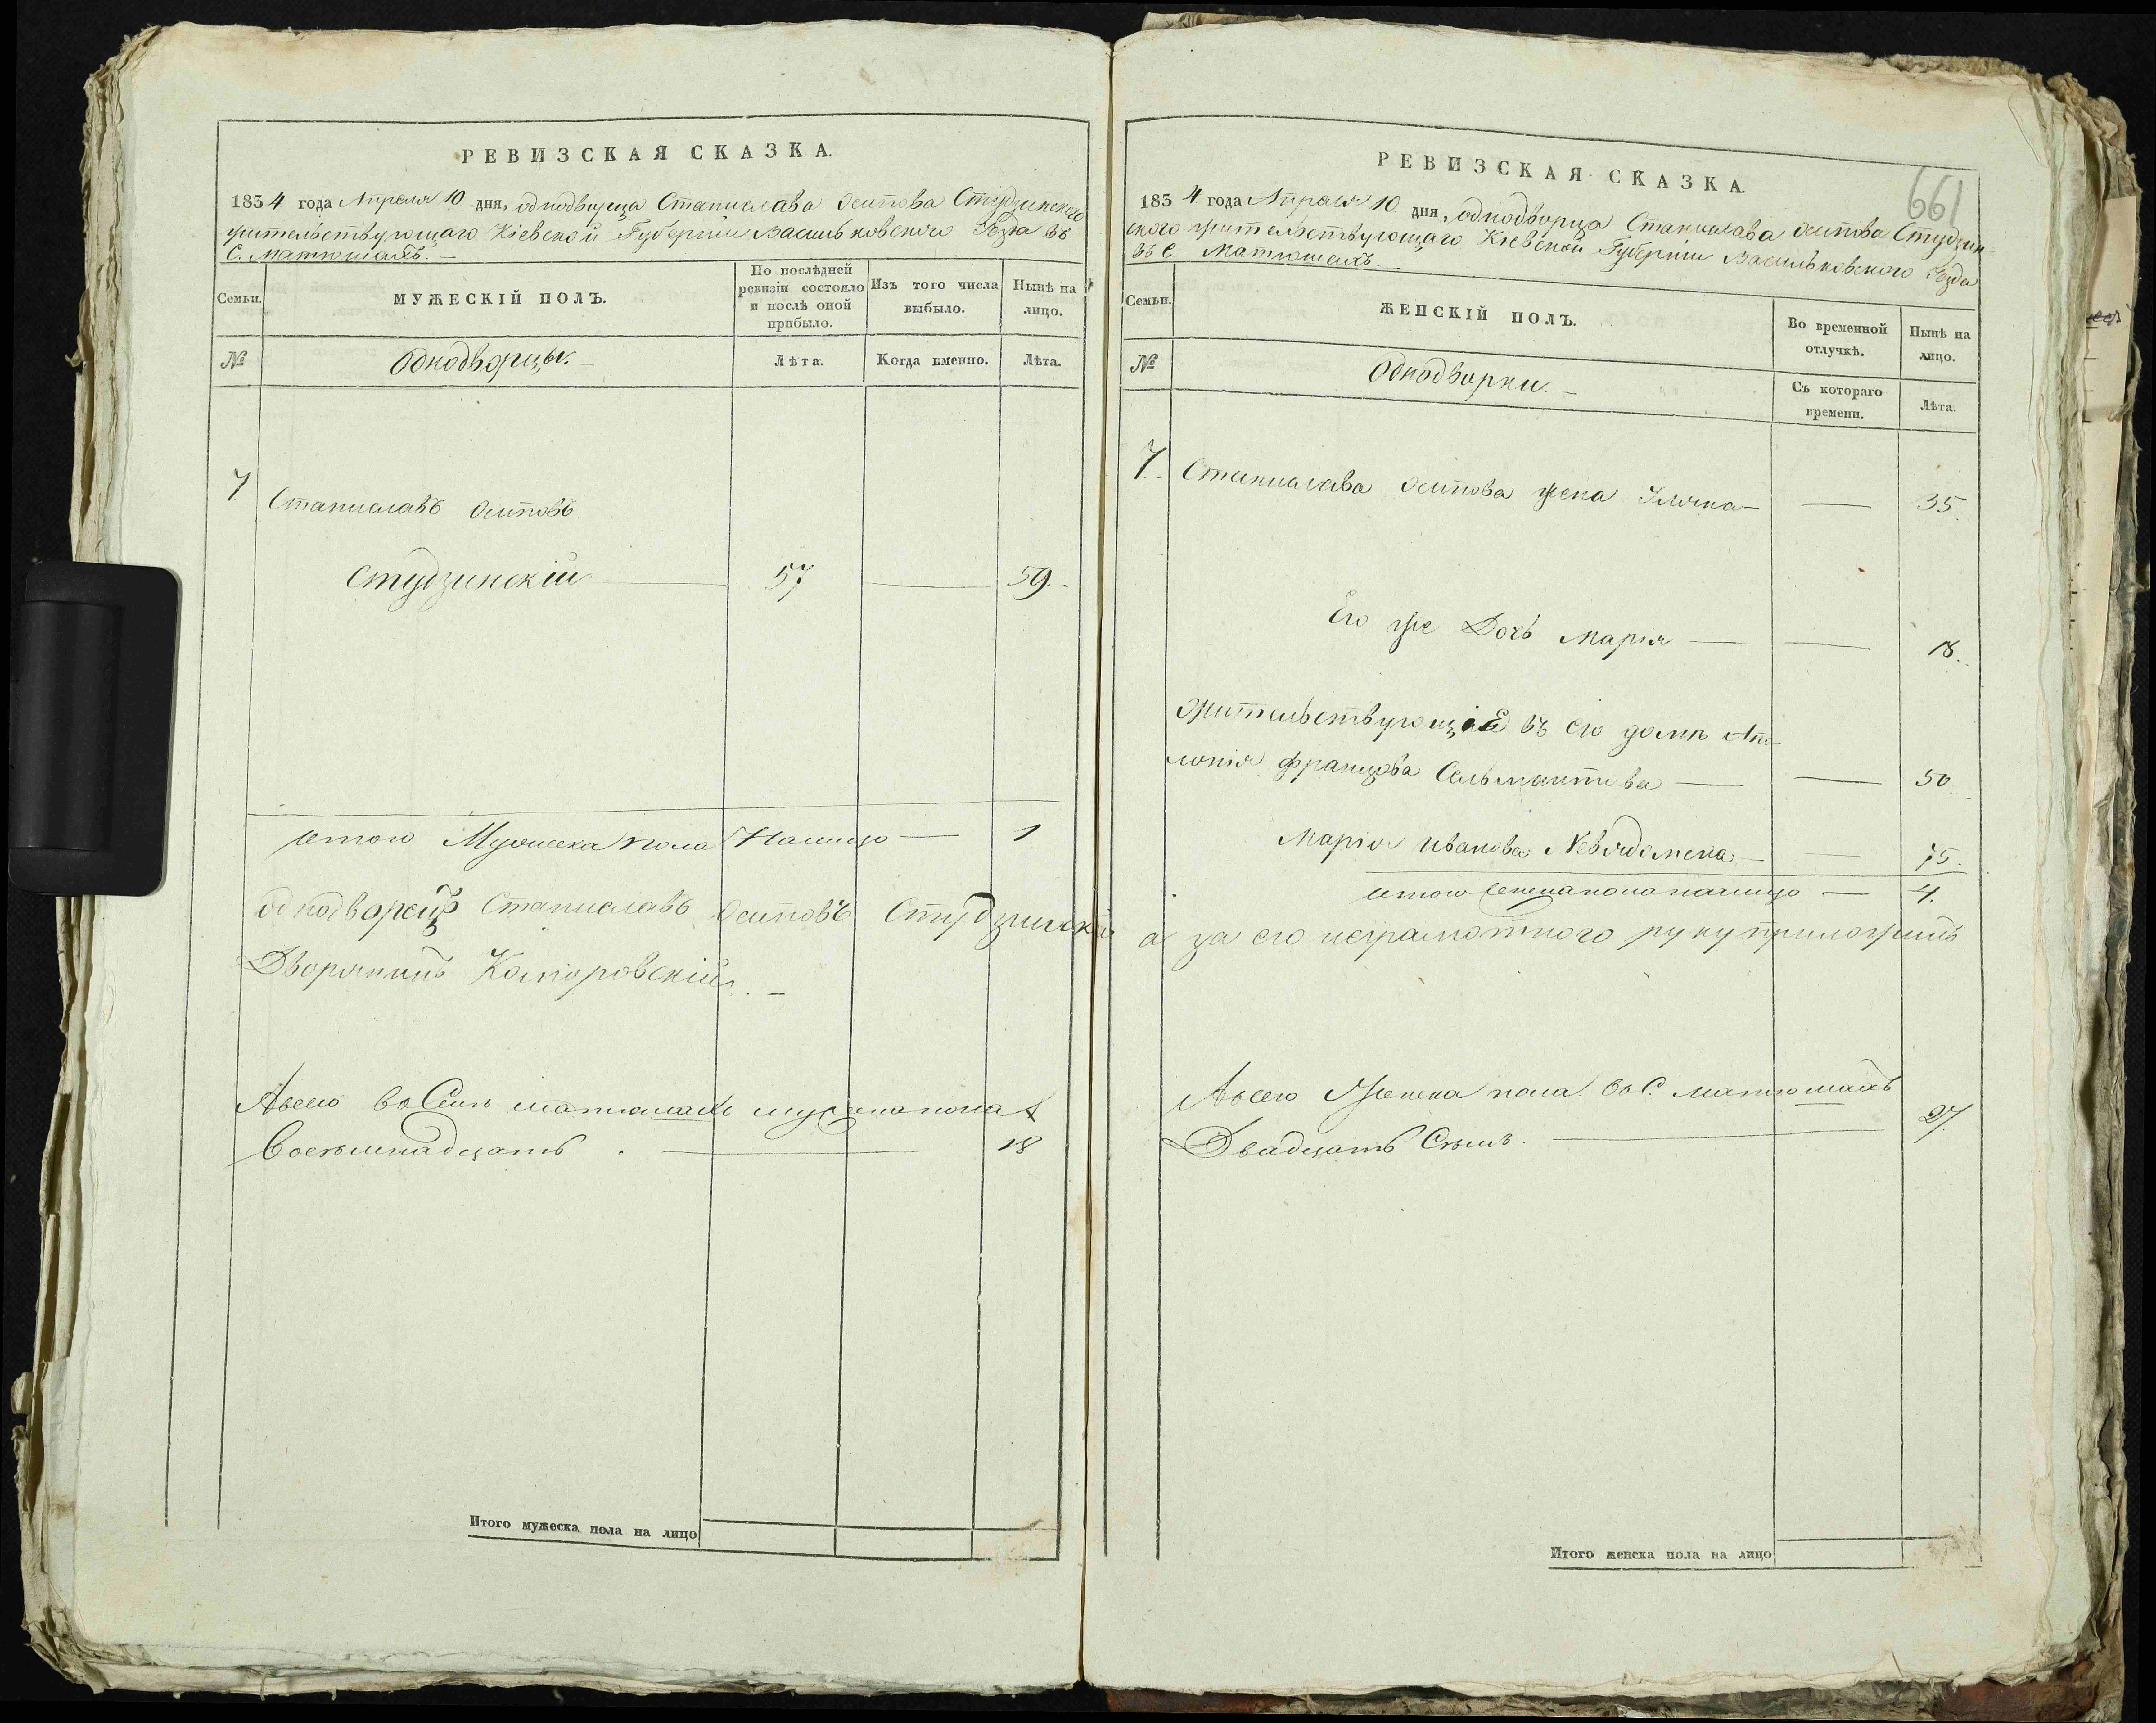 РЕВИЗСКАЯ СКАЗКА.
1834 года Апреля 10 дня, однодворца Станислава Осипова Студзинского
жительствующаго Кіевской Губерніи Васильковского Уезда въ
С. Матюшахъ.
Семьи. МУЖЕСКІЙ ПОЛЪ. По послѣдней ревизіи состояло и послѣ оной прибыло. Изъ того числа выбыло. Нынѣ на лицо.
№ Однодворцы. Лѣта. Когда именно. Лѣта.
7 Станиславъ Осиповъ
Студзинскій 57 59.
Итого Мужеска пола Налицо 1
Однодворецъ Станиславъ Осиповъ Студзинскій
Дворянинъ Коморовскій
А всего въ Селе Матюшахъ мужеска пола
Восемнадцать 18
Итого мужеска пола на лицо
661
РЕВИЗСКАЯ СКАЗКА.
1834 года Апреля 10 дня, однодворца Станислава Осипова Студзин-
ского жительствующаго Кіевской Губерніи Васильковского Уезда
въ С Матюшахъ.
Семьи. ЖЕНСКІЙ ПОЛЪ. Во временной отлучкѣ. Нынѣ на лицо.
№ Однодворки. Съ котораго времени. Лѣта.
7. Станислава Осипова жена 35.
Его же Дочь Марія 18.
Жительствующіе въ его доме Апо-
лонія Францова 50
Марія Иванова 75.
Итого женска пола налицо 4.
а за его неграмотного руку приложилъ
А всего Женска пола въ С. Матюшахъ
Двадцать Семь. 27
Итого женска пола на лицо